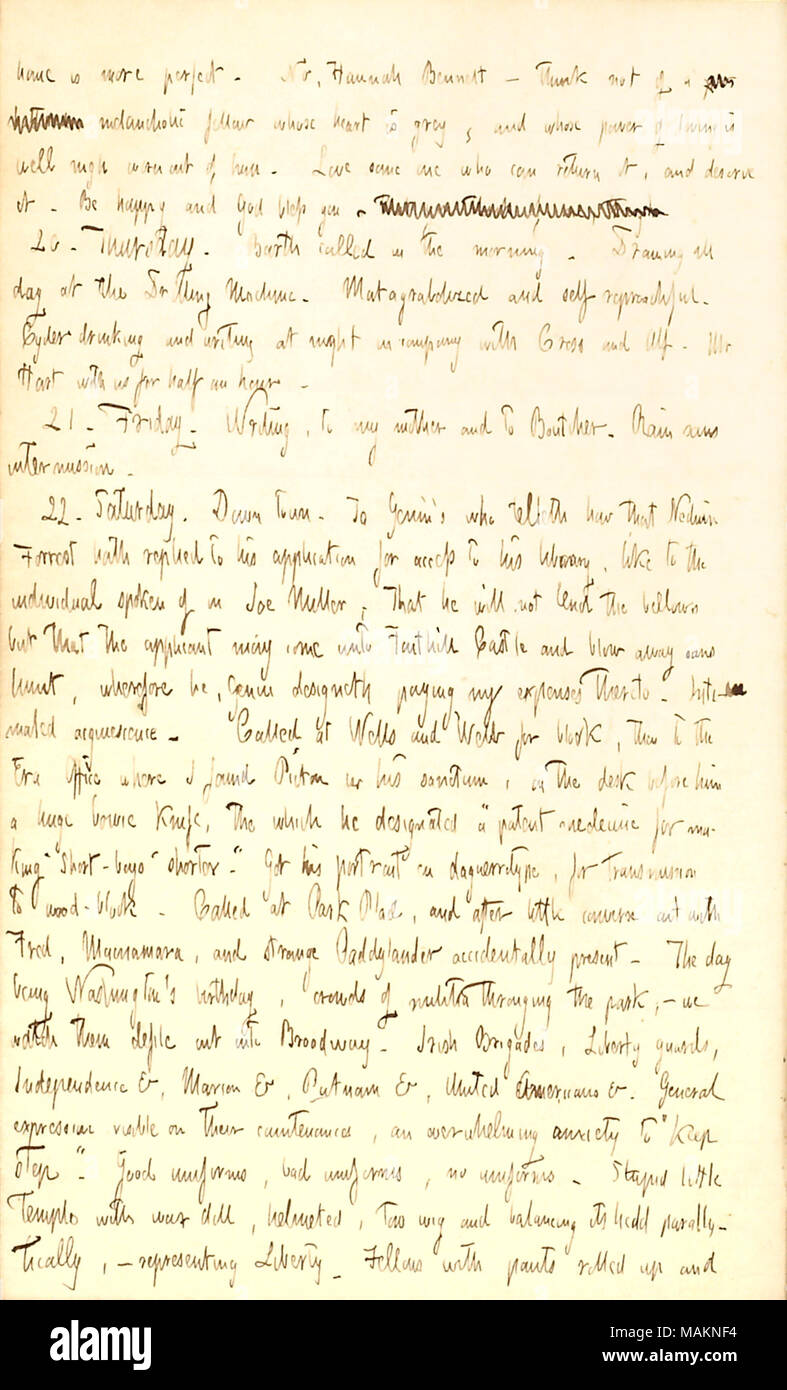 home is more perfect. No, Hannah Bennett — think not of a
melancholic fellow whose heart is grey, and whose power of loving is
well nigh worn out of him. Love some one who can return it, and deserve
it. Be happy and God bless you.
20. Thursday. Barth called in the morning. Drawing all
day at the Drilling Machine. Matagrabolized and self reproachful.
Cyder drinking and writing at night in company with Cross and Alf. Mr
Hart with us for half an hour.
21. Friday. Writing, to my mother and to Boutcher. Rain sans
intermission.
22. Saturday. Down town. To Genin's who telleth how that Neduin
Forrest hath replied to his application for access to his library, like to the
individual spoken of in Joe Miller, That he will not lend the bellows
but that the applicant may come unto Fonthill Castle and blow away sans
hunt, wherefore he, Genin designeth paying my expenses thereto. Inti-
mated acquiescence. Called at Wells and Webb for block, then to the
Era Office where I found Picton in his sanctum, on the desk before him
a huge bowie knife, the which he designated "a patent medecine for ma-
king "Short-boys" shorter." Got his portrait on daguerreotype, for transmission
to wood-block. Called at Park Place, and after little converse out with
Fred, Macnamara, and strange Paddylander accidentally present. The day
being Washington's birthday, crowds of militia thronging the park, — we
watch them defile out into Broadway. Irish Brigades, Liberty guards,
Independence &, Marion &, Putnam &, United Americans &. General
expression visible on their countenances, an overwhelming anxiety to "Keep
Step". Good uniforms, bad uniforms, no uniforms. Stupid little
Temple with wax doll, helmeted, too big and balancing its head parally-
tically, — representing Liberty. Fellows with pants rolled up and
alamy
alamy
Image ID: MAKNF4
www.alamy.com